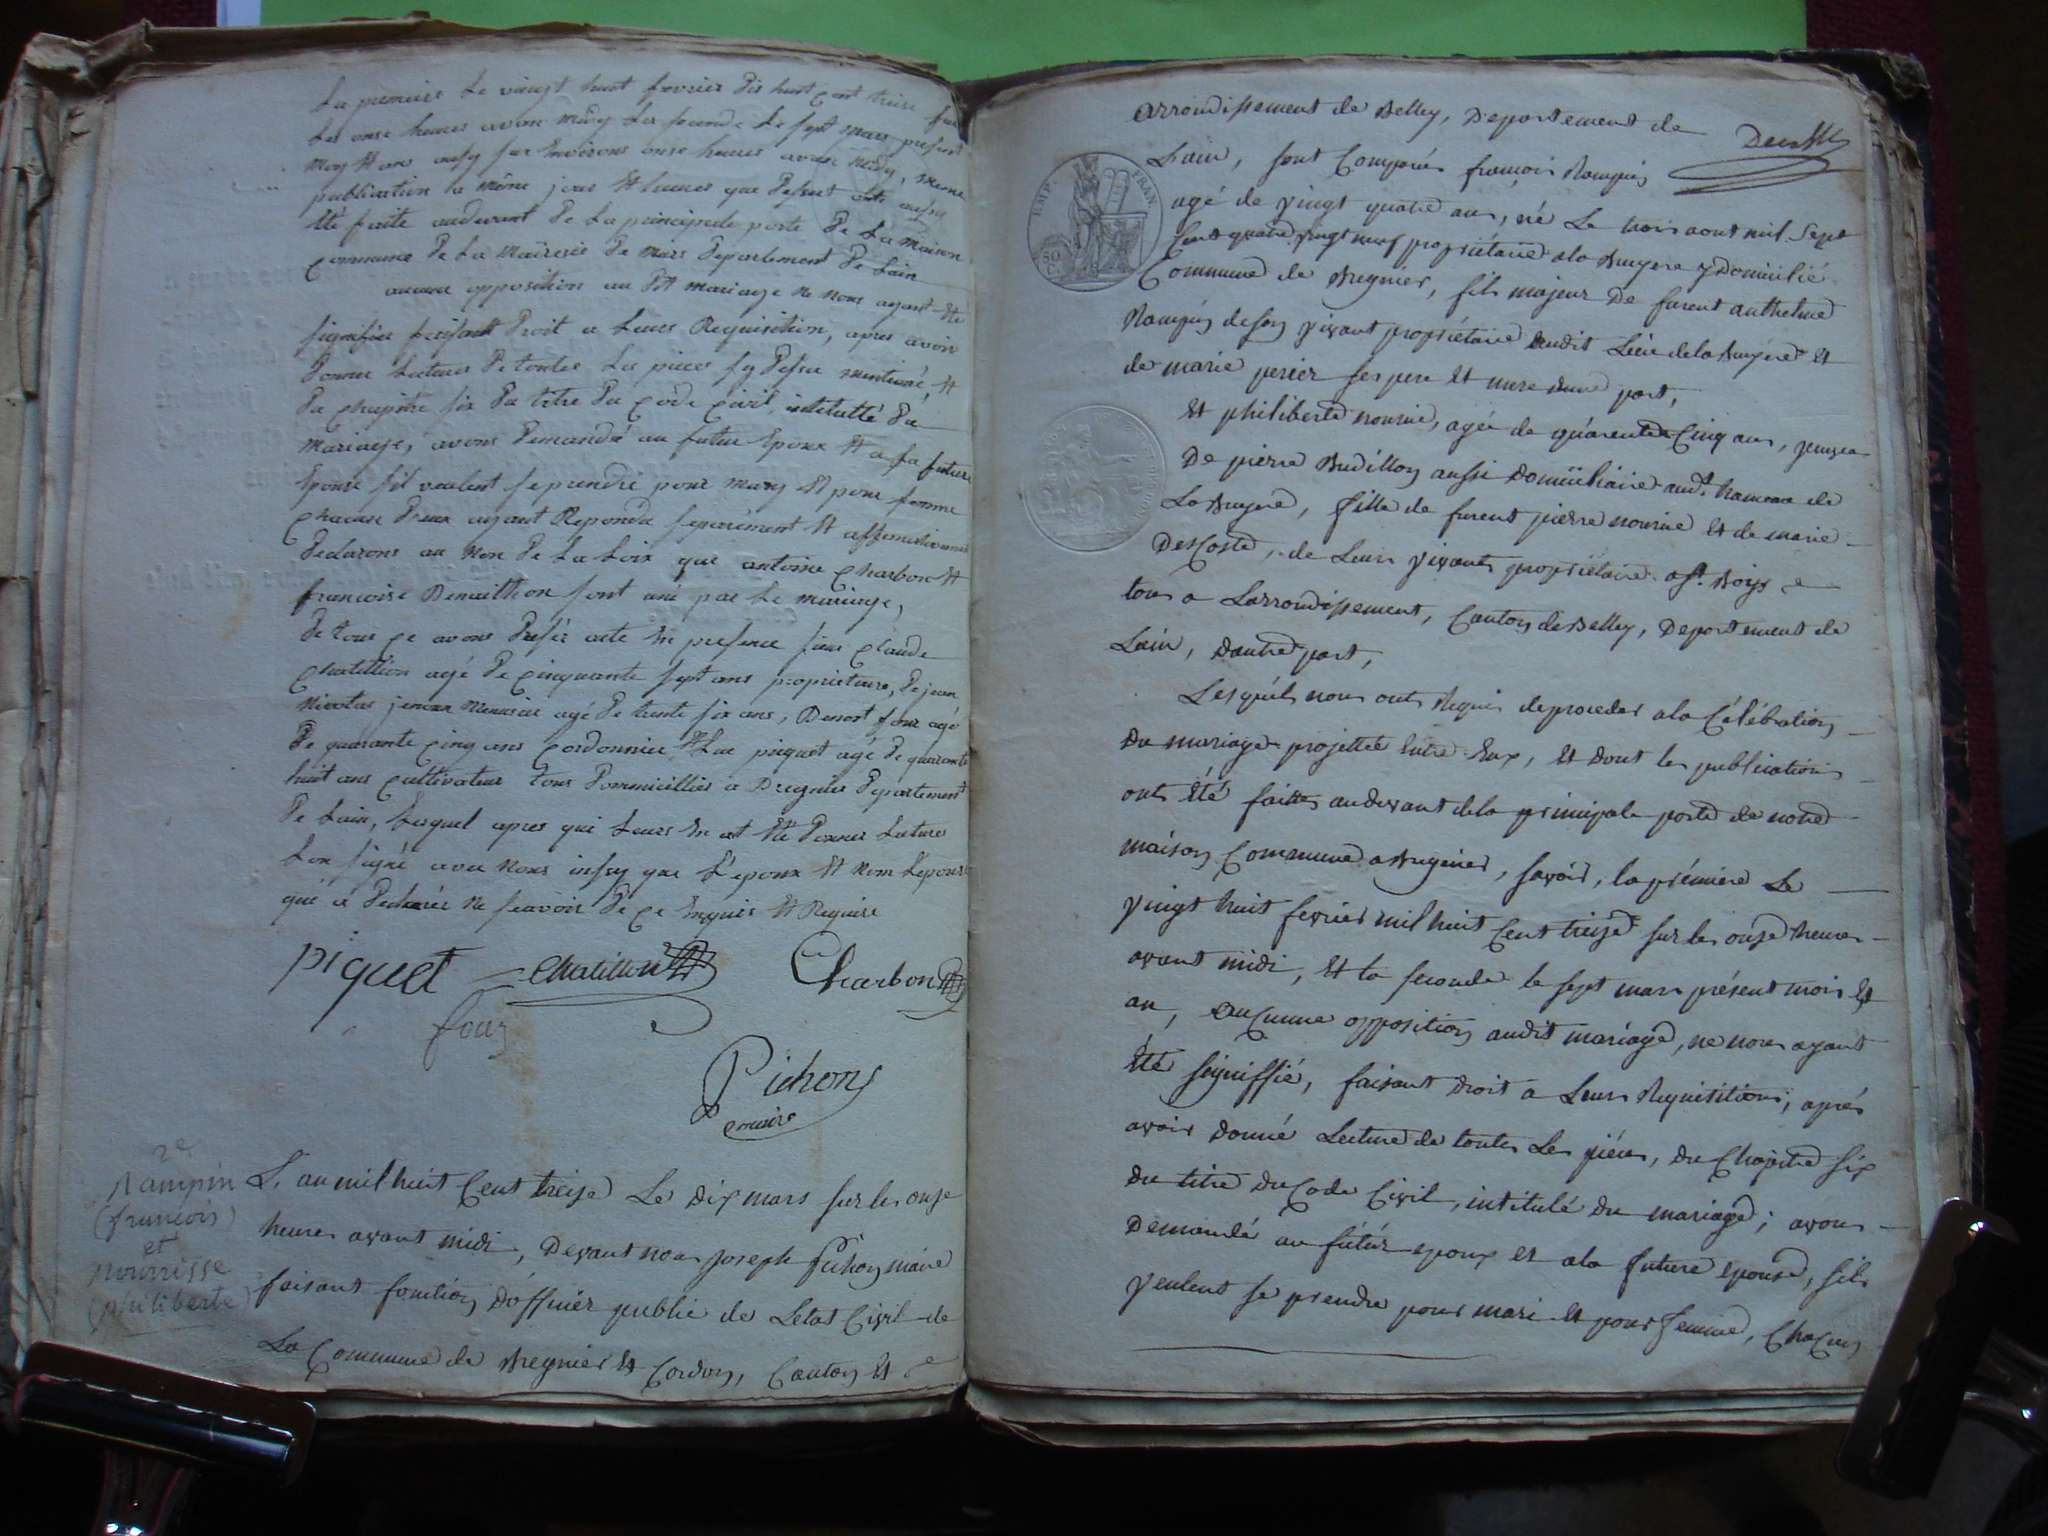 La premiere le vingt huit fevrier dis huit cent treise sur
les onse heures avan midy la seconde le sept mars present
moy et an aussy sur environs onse heures avan midy, meme
publication a même jour et heures que dessut ont aussy
été faite audevant de la principale porte de la maison
commune de la mairerie de murs departement de Lain
aucune opposition au dit mariage ne nous ayant été
signifiée faisant droit a leurs Requisition, apres avoir
donner lecture de toutes les pieces sy dessu mentioné, et
du chapitre six du titre du code civil, intitullé du
mariage, avons demandé au futur Epoux et a sa future
Epouse s'il veulent se prendre pour mary et pour femme
chacun d'eux ayant Reponda separément et affirmativement
declarons au nom de la Loix que antoine charbon et
francoise Benaitton sont uni par le mariage,
de tous ce avons dressés acte en presence sieur claude
chatillion agé de cinquante sept ans proprietaire, de jean
nicolas menusié agé de trente six ans, Benoit four agé
de quarante cinq ans cordonnier Luc picquet agé de quarante
huit ans cultivateur tous dommicilliés a Bregnier departement
de Lain, lesquel apres qui leurs en at été donner lecture
l'on signé avec nous insy que l'epoux et nom l'epouse
qui a declarée ne scavoir de ce enquis et Requise
piquet chatillion Charbon
four
Pichon
maire
2e
Rampin
(françois)
et
nourrisse
(philiberte)
L'an mil huit Cent treise Le dix mars sur les onze
heures avant midi, devant nous joseph pichon maire
faisant fonction d'officier public de Letat Civil de
La Commune de Bregnier et Cordon, Canton et
arrondissement de Belley, Departement de
Lain, sont Comparus françois Rampin
EMP. FRAN.
50 C.
agé de vingt quatre ans, né Le trois aout mil sept
Cent quatre vingt neuf propriétaire a la Bruyere y Domicilié
Commune de Bregnier, fils majeur de furent anthelme
Rampin de son vivant propriétaire dudit Lieu de la Bruyere et
de marie perier ses pere et mere dune part,
et philiberte nourrice, agée de quarente Cinq ans, veuve
De pierre Budillon aussi Domiiciliaire audt. hameau de
La Bruyere, fille de furent pierre nourice et de marie
Descoste, de Leur vivants propriétaire a st. Boys
tous a Larrondissement, Canton de Belley, Departement de
Lain, dautre part,
Lesquéls nous ont Requis de proceder a la Célébration
du mariage projettée Entre Eux, et dont les publications
ont été faittes audevant de la principale porte de notre
maison Commune a Bregnier, savoir, la prémiere Le
vingt huit fevrier mil huit Cent treize sur les onze heures
avant midi, et la seconde le sept mars présent mois et
an, auCunne opposition audit mariage, ne nous ayant
été séigniffié, faisant droit a Leurs Requisitions, aprés
avoir donné Lecture de toutes Les piéces, du Chapitre six
du titre du Code Civil, intitulé du mariage; avons
Demandé au fútúr epoux et ala future epouse, sils
veulent se prendre pour mari et pour femme, Chacun